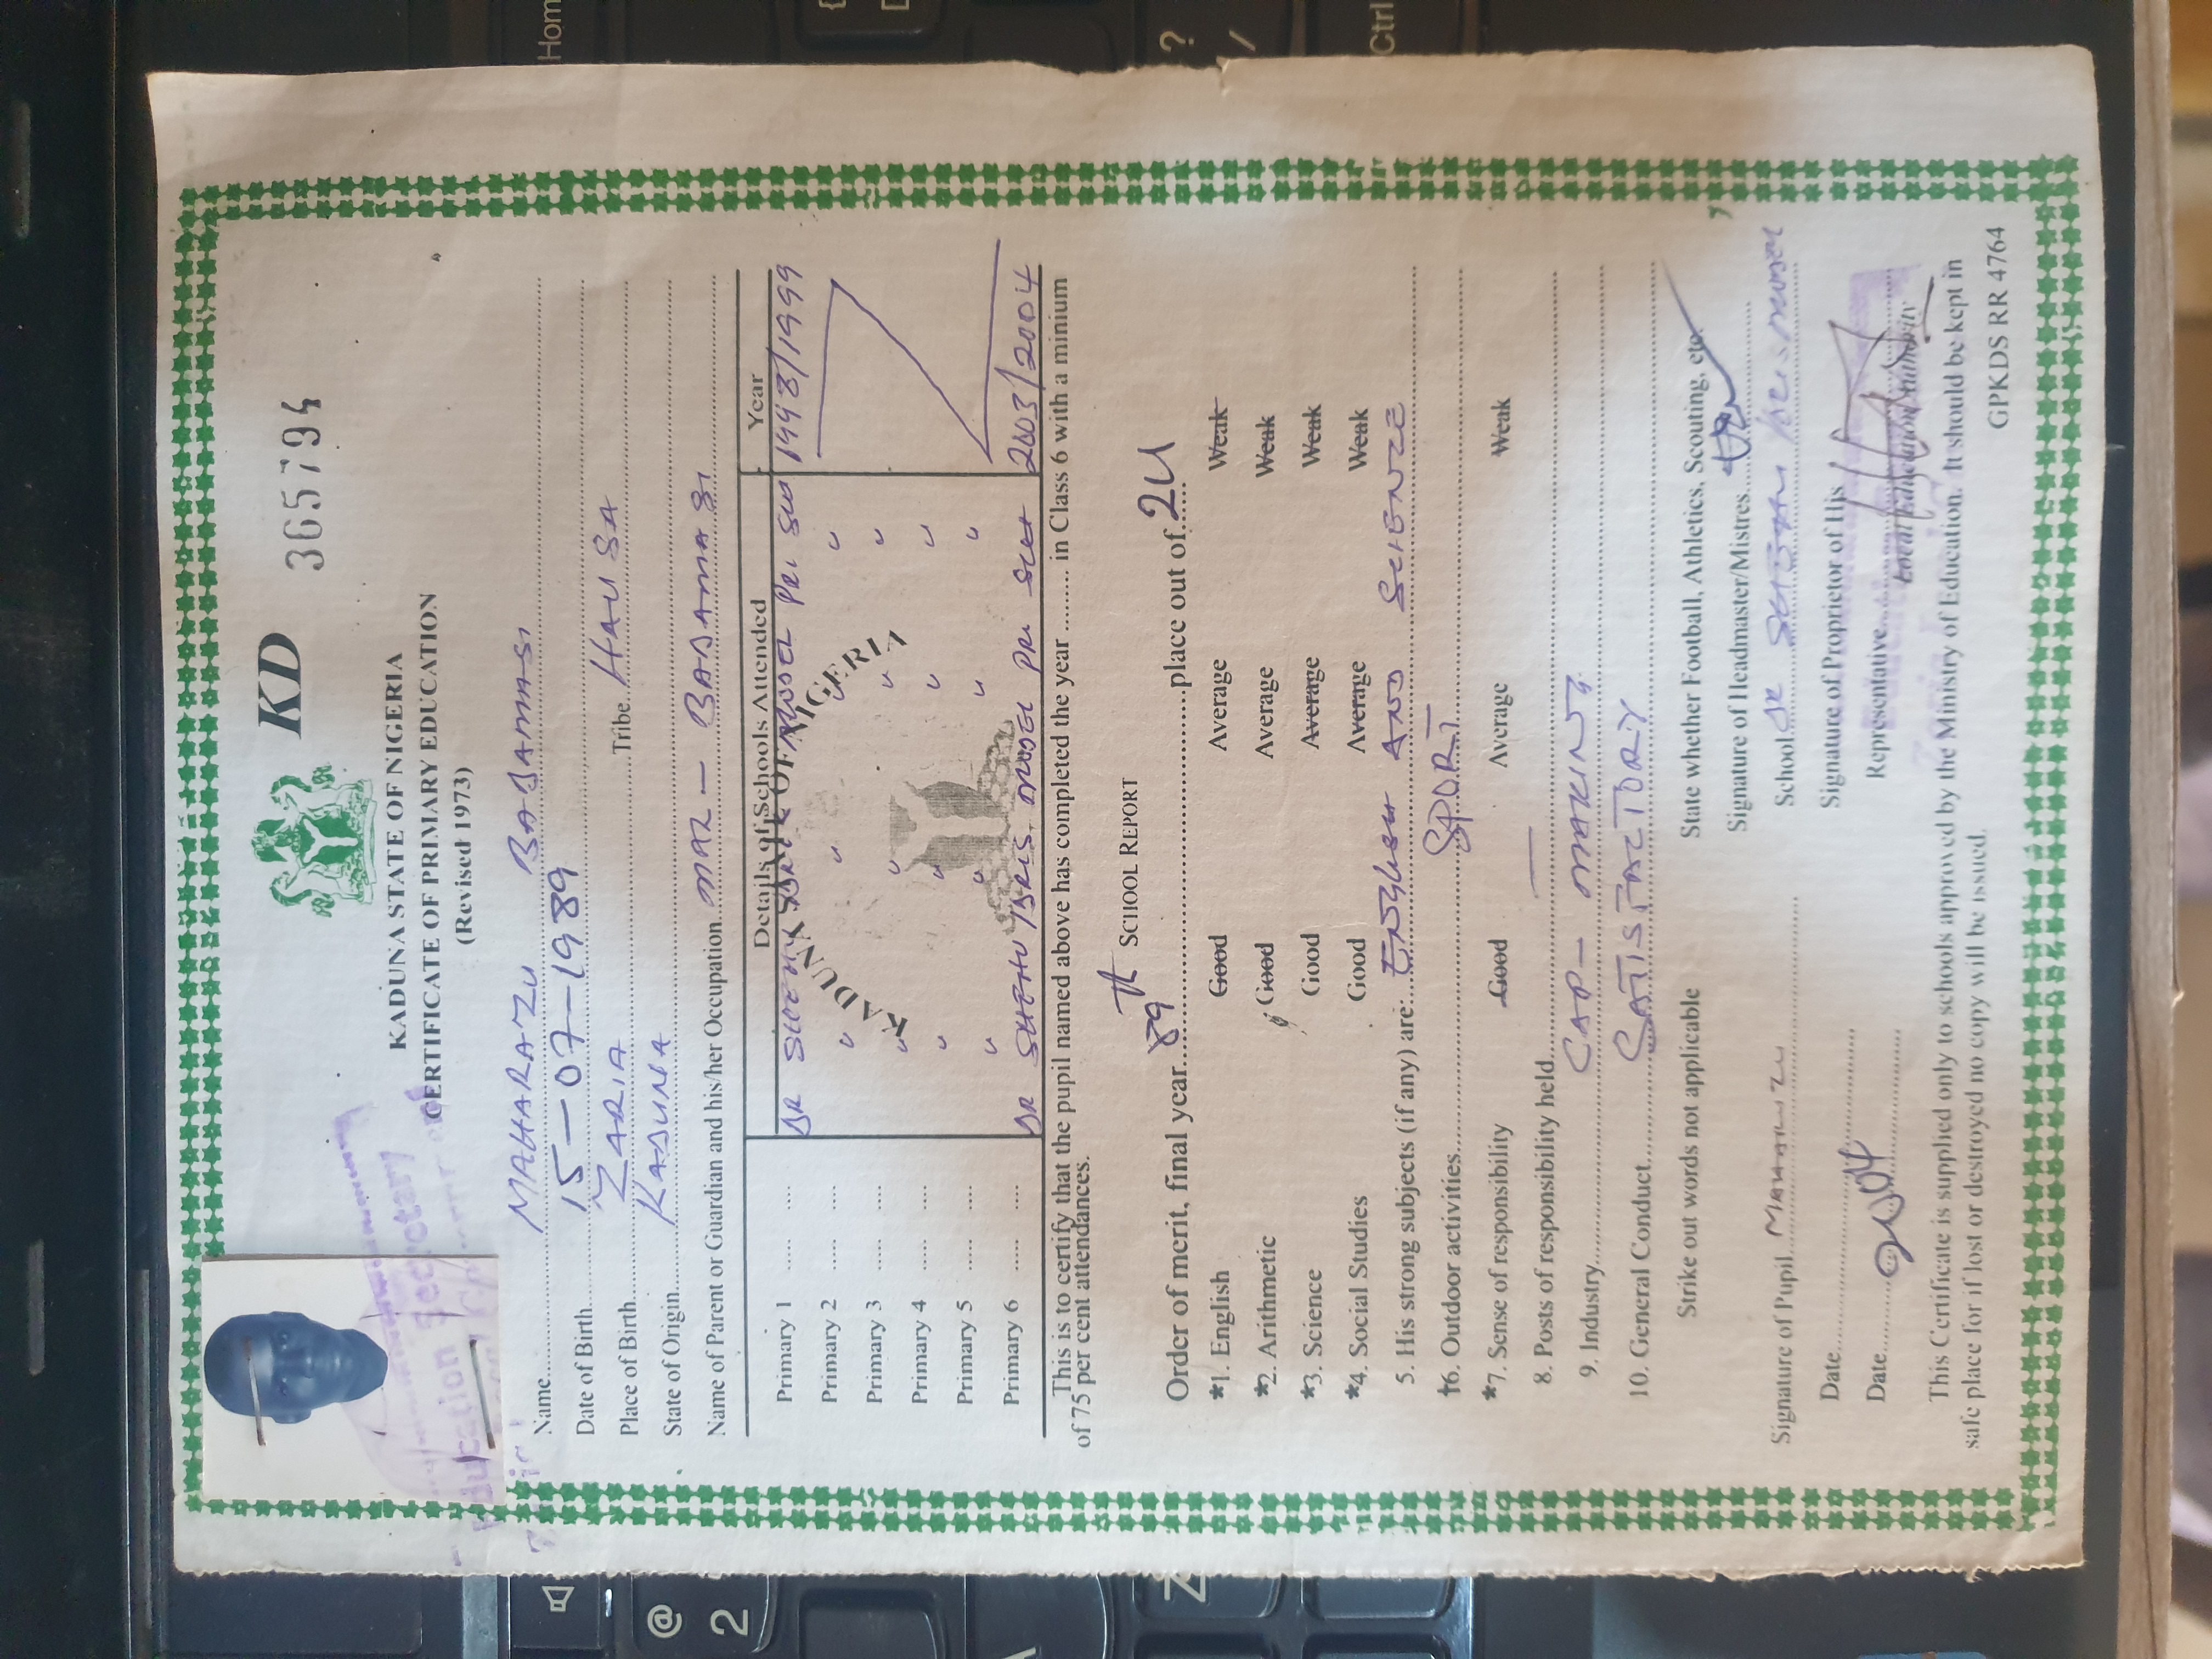 KD
365794
KADUNA STATE OF NIGERIA
CERTIFICATE OF PRIMARY EDUCATION
(Revised 1973)
Education Secretary
Name MAHARAZU BABAMASI
Date of Birth 15-07-1989
Place of Birth ZARIA Tribe HAUSA
State of Origin KADUNA
Name of Parent or Guardian and his/her Occupation MAL - BABAMASI
Details of Schools Attended Year
KADUNA STATE OF NIGERIA
Primary 1 DR SHEHU IDRIS MODEL PRI SCH 1998/1999
Primary 2 " " "
Primary 3 " " " "
Primary 4 " " " "
Primary 5 " " " "
Primary 6 DR SHEHU IDRIS MODEL PRI SCH 2003/2004
This is to certify that the pupil named above has completed the year ........ in Class 6 with a minium
of 75 per cent attendances.
SCHOOL REPORT
Order of merit, final year 89th place out of 211
*1. English Good Average Weak
*2. Arithmetic Good Average Weak
*3. Science Good Average Weak
*4. Social Studies Good Average Weak
5. His strong subjects (if any) are: ENGLISH AND SCIENCE
†6. Outdoor activities SPORT
*7. Sense of responsibility Good Average Weak
8. Posts of responsibility held —
9. Industry CAP - MAKING
10. General Conduct SATISFACTORY
Strike out words not applicable State whether Football, Athletics, Scouting, etc.
Signature of Headmaster/Mistres
Signature of Pupil MAHARAZU School DR SHEHU IDRIS MODEL
Date Signature of Proprietor of His
Date 2004 Representative
Local Education Authority
This Certificate is supplied only to schools approved by the Ministry of Education. It should be kept in
safe place for if lost or destroyed no copy will be issued.
GPKDS RR 4764
Home
@
2
Z
?
/
Ctrl